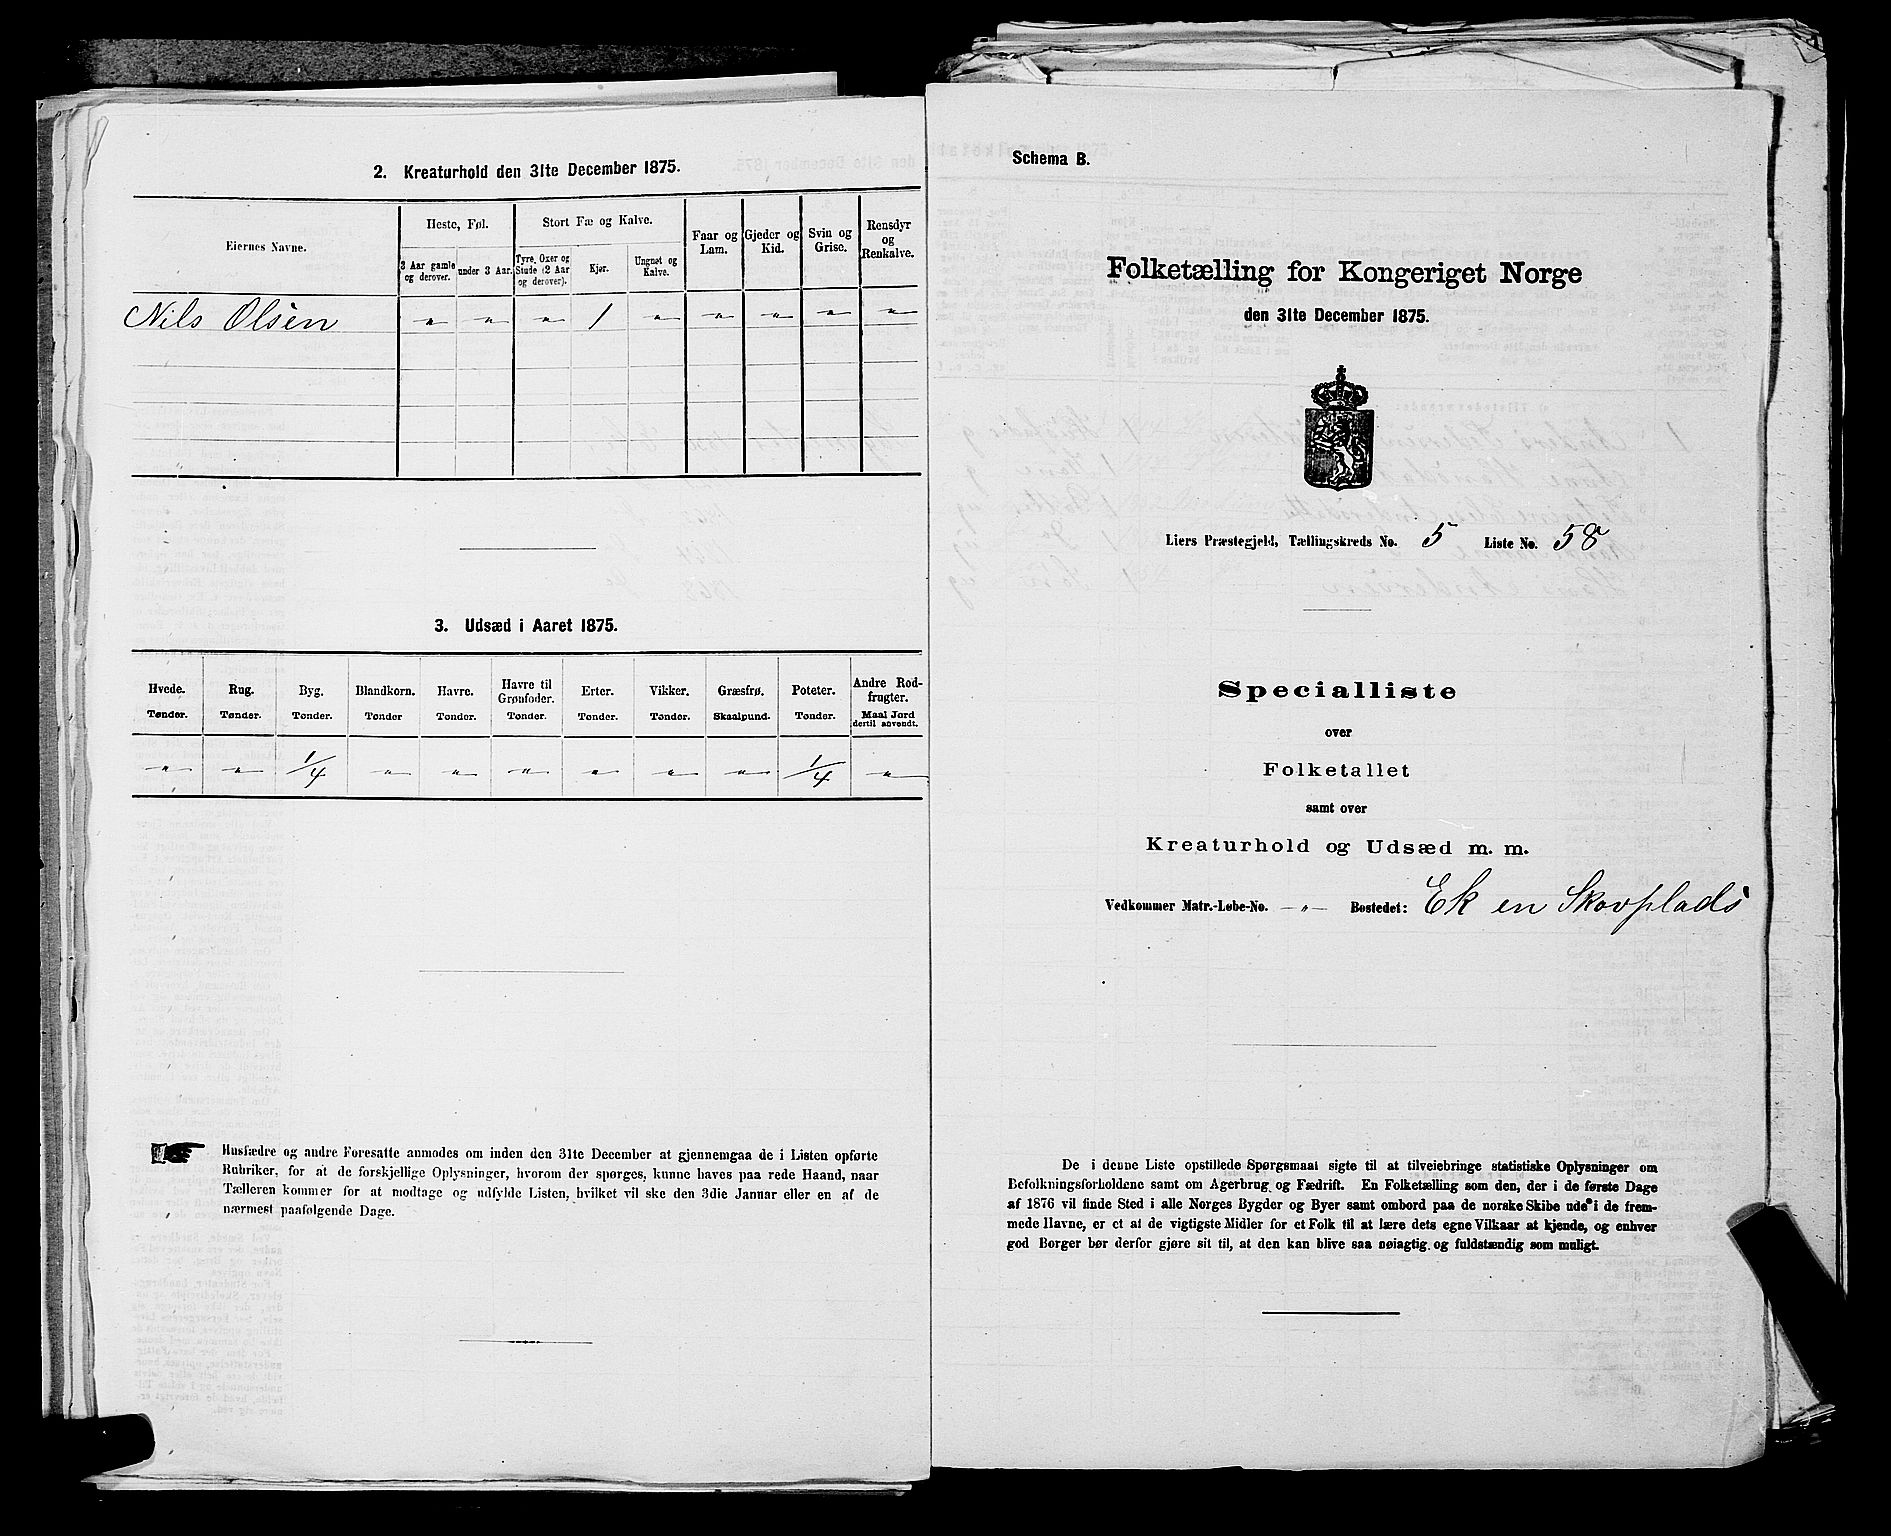 2. Kreaturhold den 31te December 1875.
Eiernes Navne.
Heste, Føl.
3 Aar gamle og derover.
under 3 Aar.
Stort Fæ og Kalve.
Tyre, Oxer og Stude (2 Aar og derover).
Kjør.
Ungnøt og Kalve.
Faar og Lam.
Gjeder og Kid.
Svin og Grise.
Rensdyr og Renkalve.
Nils Olsen " " " 1 " " " " "
3. Udsæd i Aaret 1875.
Hvede. Tønder.
Rug. Tønder.
Byg. Tønder.
Blandkorn. Tønder
Havre. Tønder.
Havre til Grønfoder. Tønder.
Erter. Tønder.
Vikker. Tønder.
Græsfrø. Skaalpund.
Poteter. Tønder.
Andre Rodfrugter. Maal Jord dertil anvendt.
" " 1/4 " " " " " " 1/4 "
Husfædre og andre Foresatte anmodes om inden den 31te December at gjennemgaa de i Listen opførte
Rubriker, for at de forskjellige Oplysninger, hvorom der spørges, kunne haves paa rede Haand, naar
Tælleren kommer for at modtage og udfylde Listen, hvilket vil ske den 3die Januar eller en af de
nærmest paafølgende Dage.
Schema B.
Folketælling for Kongeriget Norge
den 31te December 1875.
Liers Præstegjeld, Tællingskreds No. 5 Liste No. 58
Specialliste
over
Folketallet
samt over
Kreaturhold og Udsæd m. m.
Vedkommer Matr.-Løbe-No. " Bostedet: Ek en Skovplads
De i denne Liste opstillede Spørgsmaal sigte til at tilveiebringe statistiske Oplysninger om
Befolkningsforholdene samt om Agerbrug og Fædrift. En Folketælling som den, der i de første Dage
af 1876 vil finde Sted i alle Norges Bygder og Byer samt ombord paa de norske Skibe ude i de frem-
mede Havne, er et af de vigtigste Midler for et Folk til at lære dets egne Vilkaar at kjende, og enhver
god Borger bør derfor gjøre sit til, at den kan blive saa nøiagtig og fuldstændig som muligt.